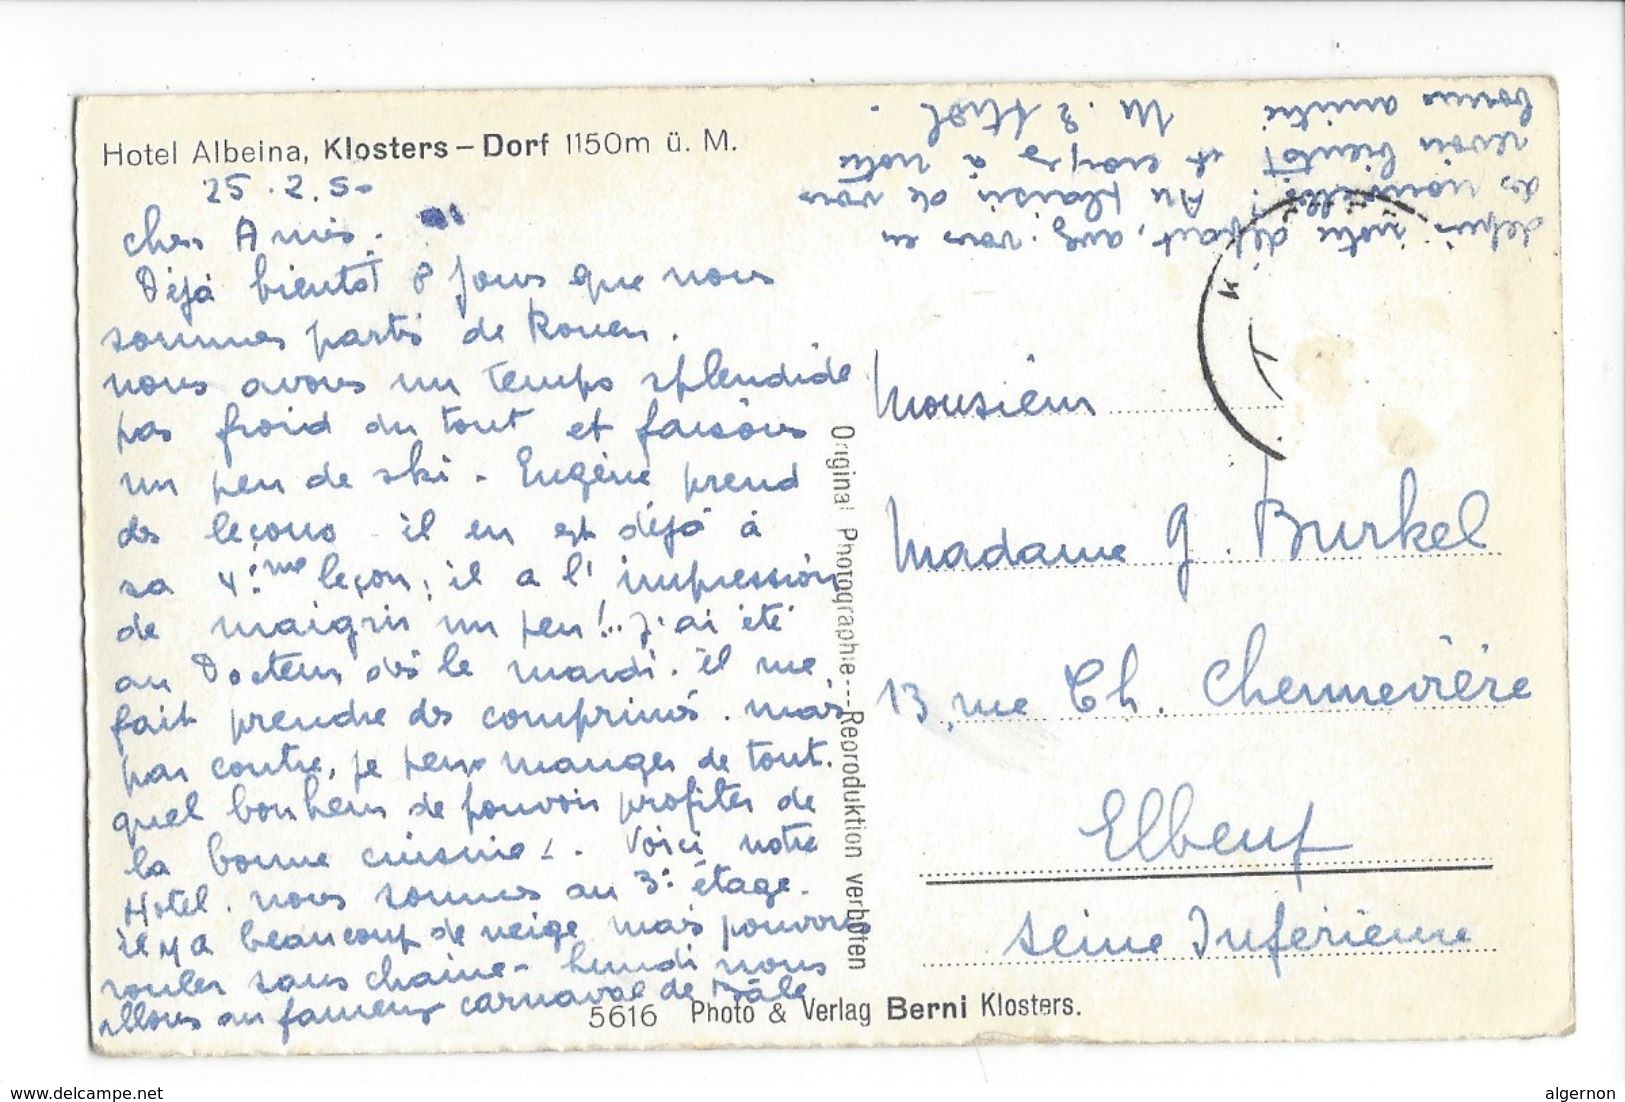 Hotel Albeina, Klosters – Dorf 1150m ü. M.
25.2.50
Cher Amis.
Déjà bientôt 8 jours que nous
sommes partis de Rouen.
nous avons un temps splendide
pas froid du tout et faisons
un peu de ski - Eugène prend
des leçons il en est déjà à
sa 4ième leçon, il a l'impression
de maigrir un peu!.. j'ai été
au Docteur dès le mardi. il me
fait prendre des comprimés. mais
par contre, je peux manger de tout.
quel bonheur de pouvoir profiter de
la bonne cuisine!. Voici notre
Hotel. nous sommes au 3: étage.
il y a beaucoup de neige mais pouvons
rouler sans chaine - Lundi nous
allons au fameux carnaval de Bâle
depuis notre départ, avez vous eu
des nouvelles? Au plaisir de vous
revoir bientôt et croyez à notre
bonne amitié
Original Photographie---Reproduktion verboten
Monsieur
Madame G. Burkel
13, rue Ch. Chennevière
Elbeuf
Seine Inférieure
5616 Photo & Verlag Berni Klosters.
delcampe.net
algernon